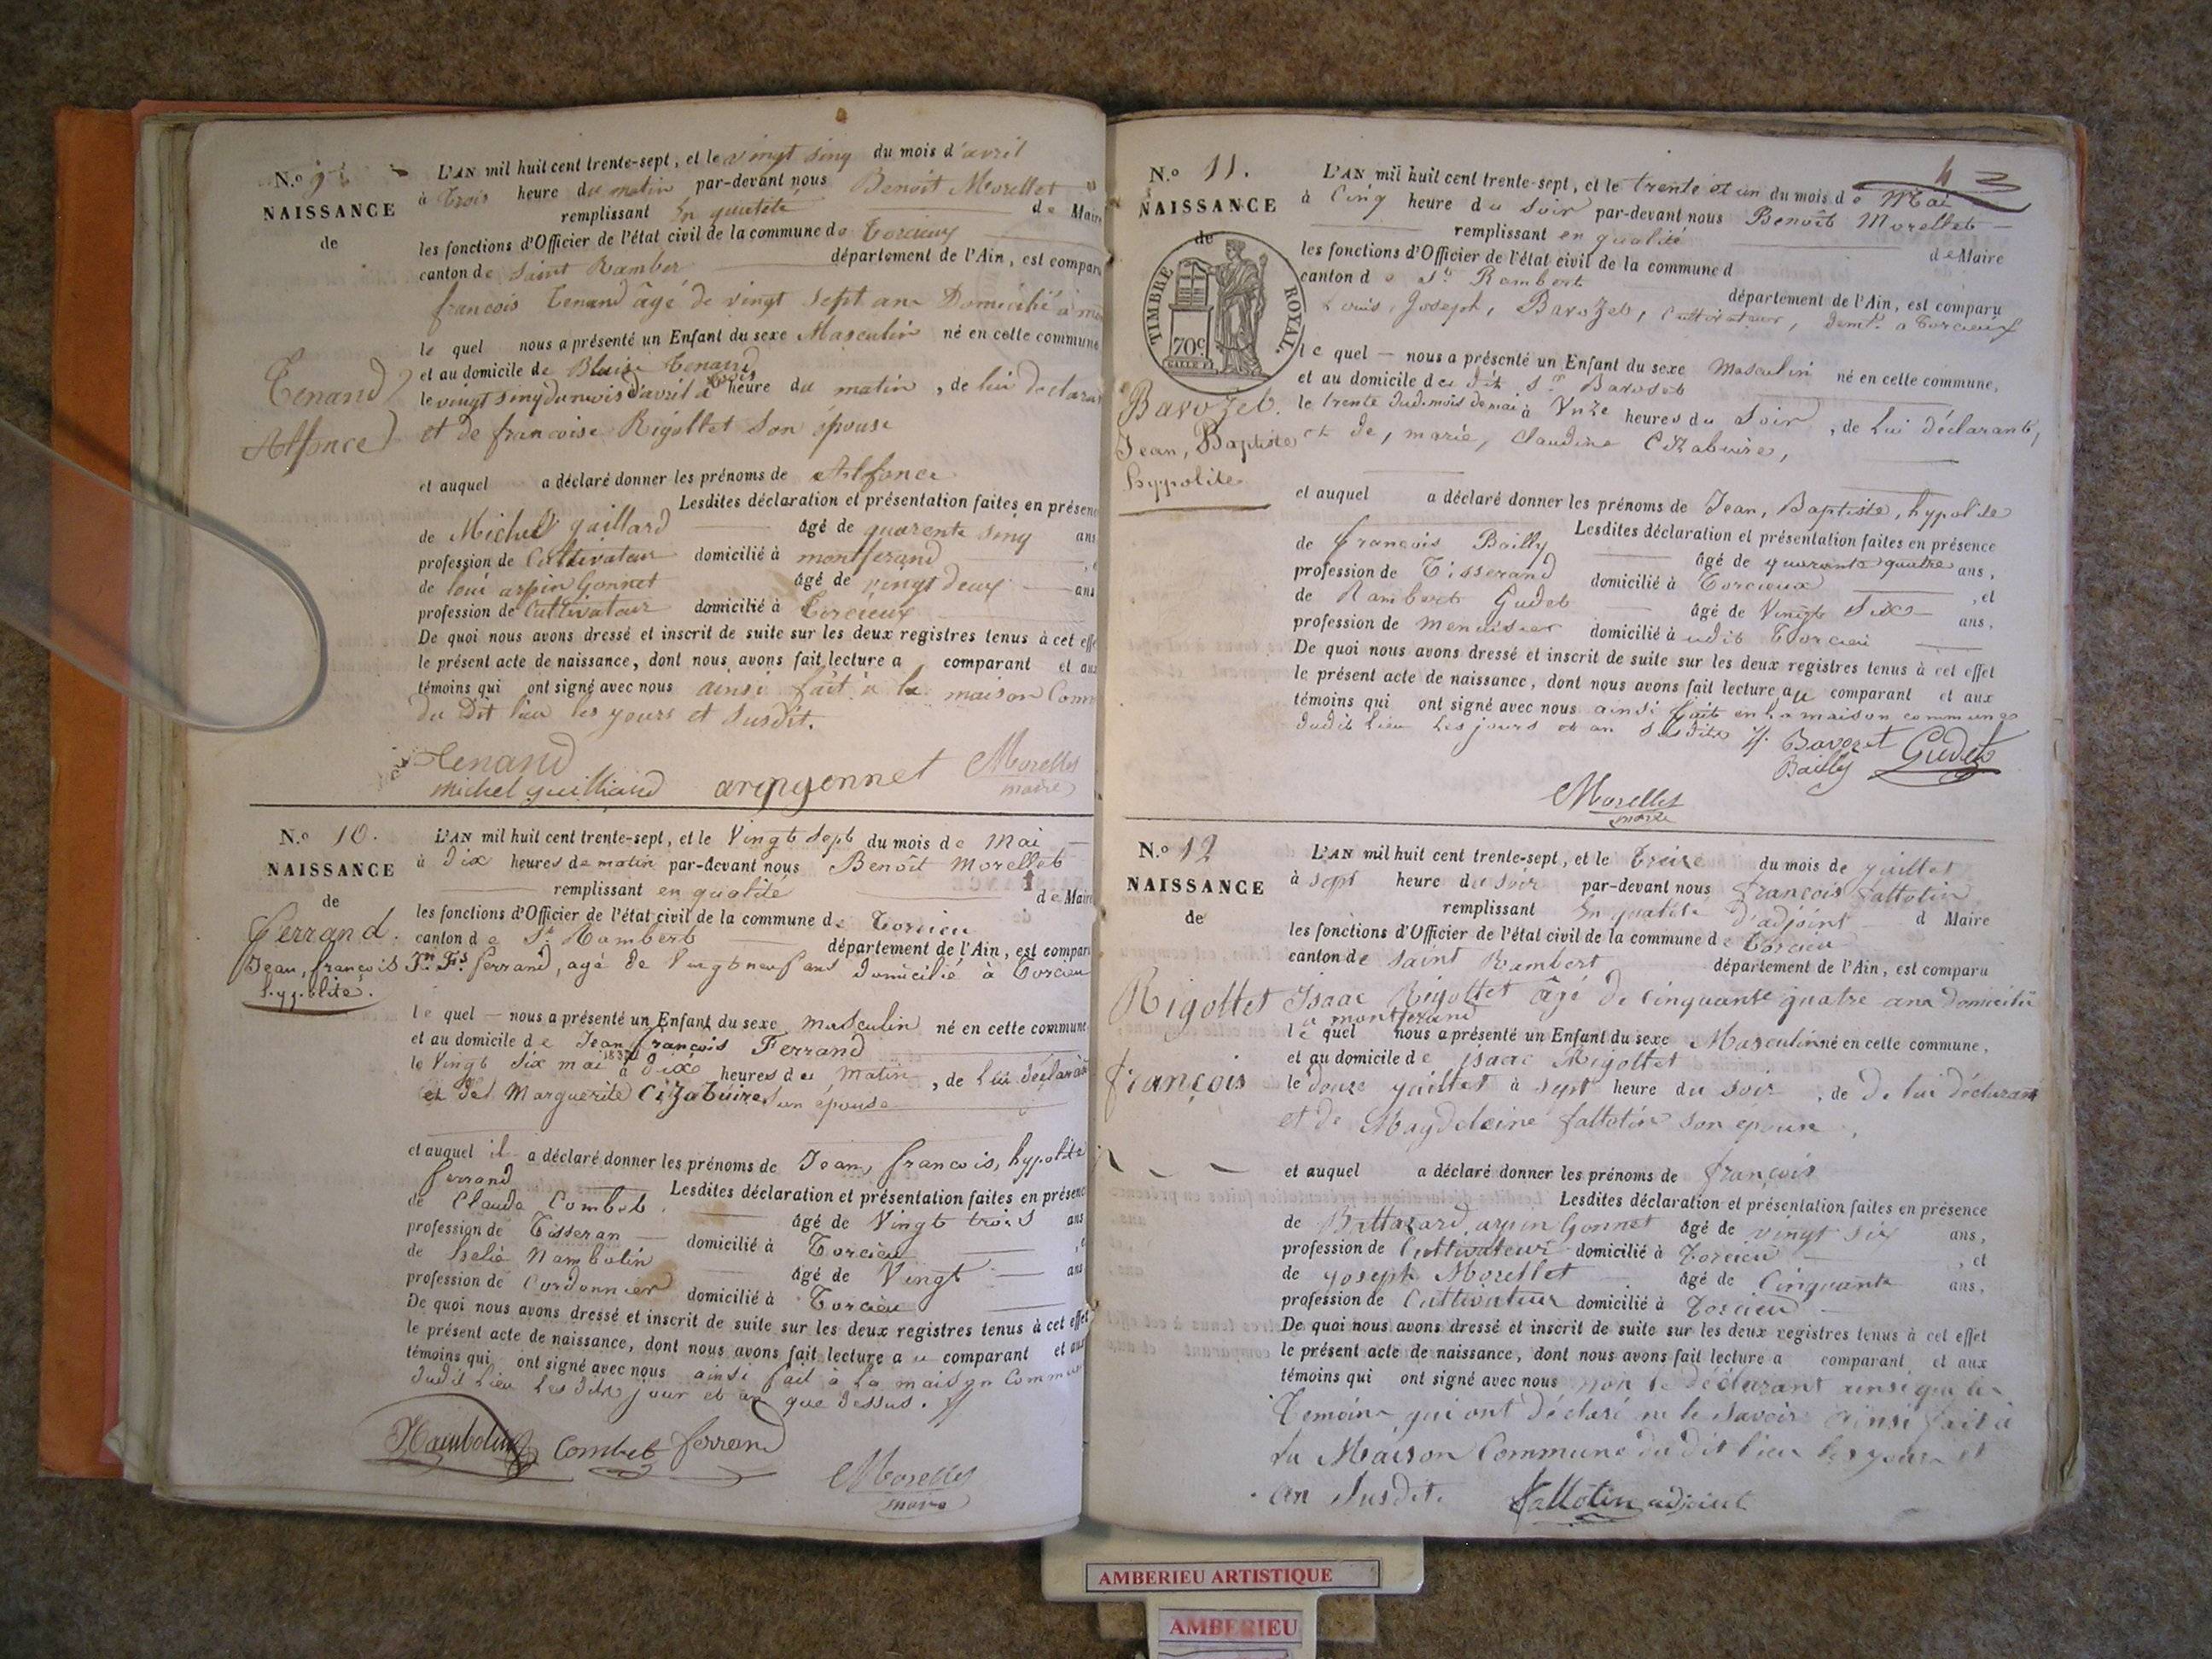 N.o 9
NAISSANCE
de
Tenand
Alfonce
L'AN mil huit cent trente-sept, et le vingt sinq du mois d'avril
à trois heure du matin par-devant nous Benoit Morellet
remplissant en qualité de Maire
les fonctions d'Officier de l'état civil de la commune de Torcieux
canton de Saint Ramber département de l'Ain, est compar
francois Tenand âgé de vingt sept ans Domicilié à
le quel nous a présenté un Enfant du sexe Masculin né en cette commune
et au domicile de Blaise Tenand
le vingt sinq du mois d'avril à trois heure du matin, de lui declara
et de francoise Rigollet son épouse
et auquel a déclaré donner les prénoms de Alfonce
Lesdites déclaration et présentation faites en présen
de Michel gaillard âgé de quarente sinq ans
profession de Cultivateur domicilié à montferand
de loui arpin Gonnet âgé de vingt deux ans
profession de Cultivateur domicilié à Torcieux
De quoi nous avons dressé et inscrit de suite sur les deux registres tenus à cet effe
le présent acte de naissance, dont nous avons fait lecture a comparant et au
témoins qui ont signé avec nous ainsi fait à la maison Com
du Dit lieu les yours et susdit.
Tenand
michel guilliand arpingonnet Morellet
maire
N.o 10.
NAISSANCE
de
Ferrand.
Jean, françois
hypolite.
L'AN mil huit cent trente-sept, et le Vingt sept du mois de Mai
à dix heures de matin par-devant nous Benoît Morellet
remplissant en qualité de Maire
les fonctions d'Officier de l'état civil de la commune de Torcieu
canton de St Rambert département de l'Ain, est compar
Jn Fs ferrand, agé de Vingt neuf ans domicilié à Torcieu
le quel nous a présenté un Enfant du sexe masculin né en cette commune
et au domicile de Jean françois Ferrand
le Vingt six mai 1837 à dix heures du matin, de lui déclara
et de Marguerite Cizabuire son épouse
et auquel il a déclaré donner les prénoms de Jean, francois, hypolite
ferrand
Lesdites déclaration et présentation faites en présenc
de Claude Combet âgé de Vingt trois ans
profession de Tisseran domicilié à Torcieu
de helie Nambotin âgé de Vingt ans
profession de Cordonnier domicilié à Torcieu
De quoi nous avons dressé et inscrit de suite sur les deux registres tenus à cet effet
le présent acte de naissance, dont nous avons fait lecture a u comparant et aux
témoins qui ont signé avec nous ainsi fait à la maison Commu
dudit Lieu Les dits jour et an que dessus.
Nambotin Combet ferrand
Morellet
maire
43
N.o 11.
NAISSANCE
de
TIMBRE ROYAL.
70c
Bavozet.
Jean, Baptiste
hyppolite
L'AN mil huit cent trente-sept, et le trente et un du mois de Mai
à Cinq heure du Soir par-devant nous Benoît Morellet
remplissant en qualité de Maire
les fonctions d'Officier de l'état civil de la commune d
canton de St Rambert département de l'Ain, est comparu
Louis, Joseph, Bavozet, Cultivateur, demt. a Torcieux
le quel nous a présenté un Enfant du sexe Masculin né en cette commune,
et au domicile du dit Sr Bavoset
le trente dudi mois de mai à Unze heures du Soir, de Lui déclarant,
et de, marie, Claudine Cizabuire,
et auquel a déclaré donner les prénoms de Jean, Baptiste, hypolite
Lesdites déclaration et présentation faites en présence
de françois Bailly âgé de quarante quatre ans,
profession de Tisserand domicilié à Torcieux, et
de Rambert Gudet âgé de Vingt Six ans,
profession de menuisier domicilié à udit Torcieu
De quoi nous avons dressé et inscrit de suite sur les deux registres tenus à cet effet
le présent acte de naissance, dont nous avons fait lecture au comparant et aux
témoins qui ont signé avec nous ainsi fait en La maison commune
dudit Lieu Les jours et an susdits Bavozet Gudet
Bailly
Morellet
maire
N.o 12
NAISSANCE
de
Rigollet
françois
L'AN mil huit cent trente-sept, et le treize du mois de yuillet
à sept heure du soir par-devant nous françois fallotin
remplissant En qualité d'adjoint d Maire
les fonctions d'Officier de l'état civil de la commune de Torcieu
canton de Saint Rambert département de l'Ain, est comparu
Isaac Rigollet âgé de Cinquante quatre ans domicilié
a montferand
le quel nous a présenté un Enfant du sexe Masculin né en cette commune,
et au domicile de Isaac Rigollet
le douze yuillet à sept heure du soir, de de lui déclarant
et de Magdeleine fallotin son épouse.
et auquel a déclaré donner les prénoms de françois
Lesdites déclaration et présentation faites en présence
de Baltazard arpin Gonnet âgé de vingt six ans,
profession de Cultivateur domicilié à Torcieu, et
de yoseph Morellet âgé de Cinquante ans,
profession de Cultivateur domicilié à Torcieu
De quoi nous avons dressé et inscrit de suite sur les deux registres tenus à cet effet
le présent acte de naissance, dont nous avons fait lecture a comparant et aux
témoins qui ont signé avec nous non le déclarant ainsi que les
Temoins qui ont déclaré ne le savoir Ainsi fait à
la Maison Commune du dit lieu les yours et
an Susdit. fallotin adjoint
AMBERIEU ARTISTIQUE
AMBERIEU